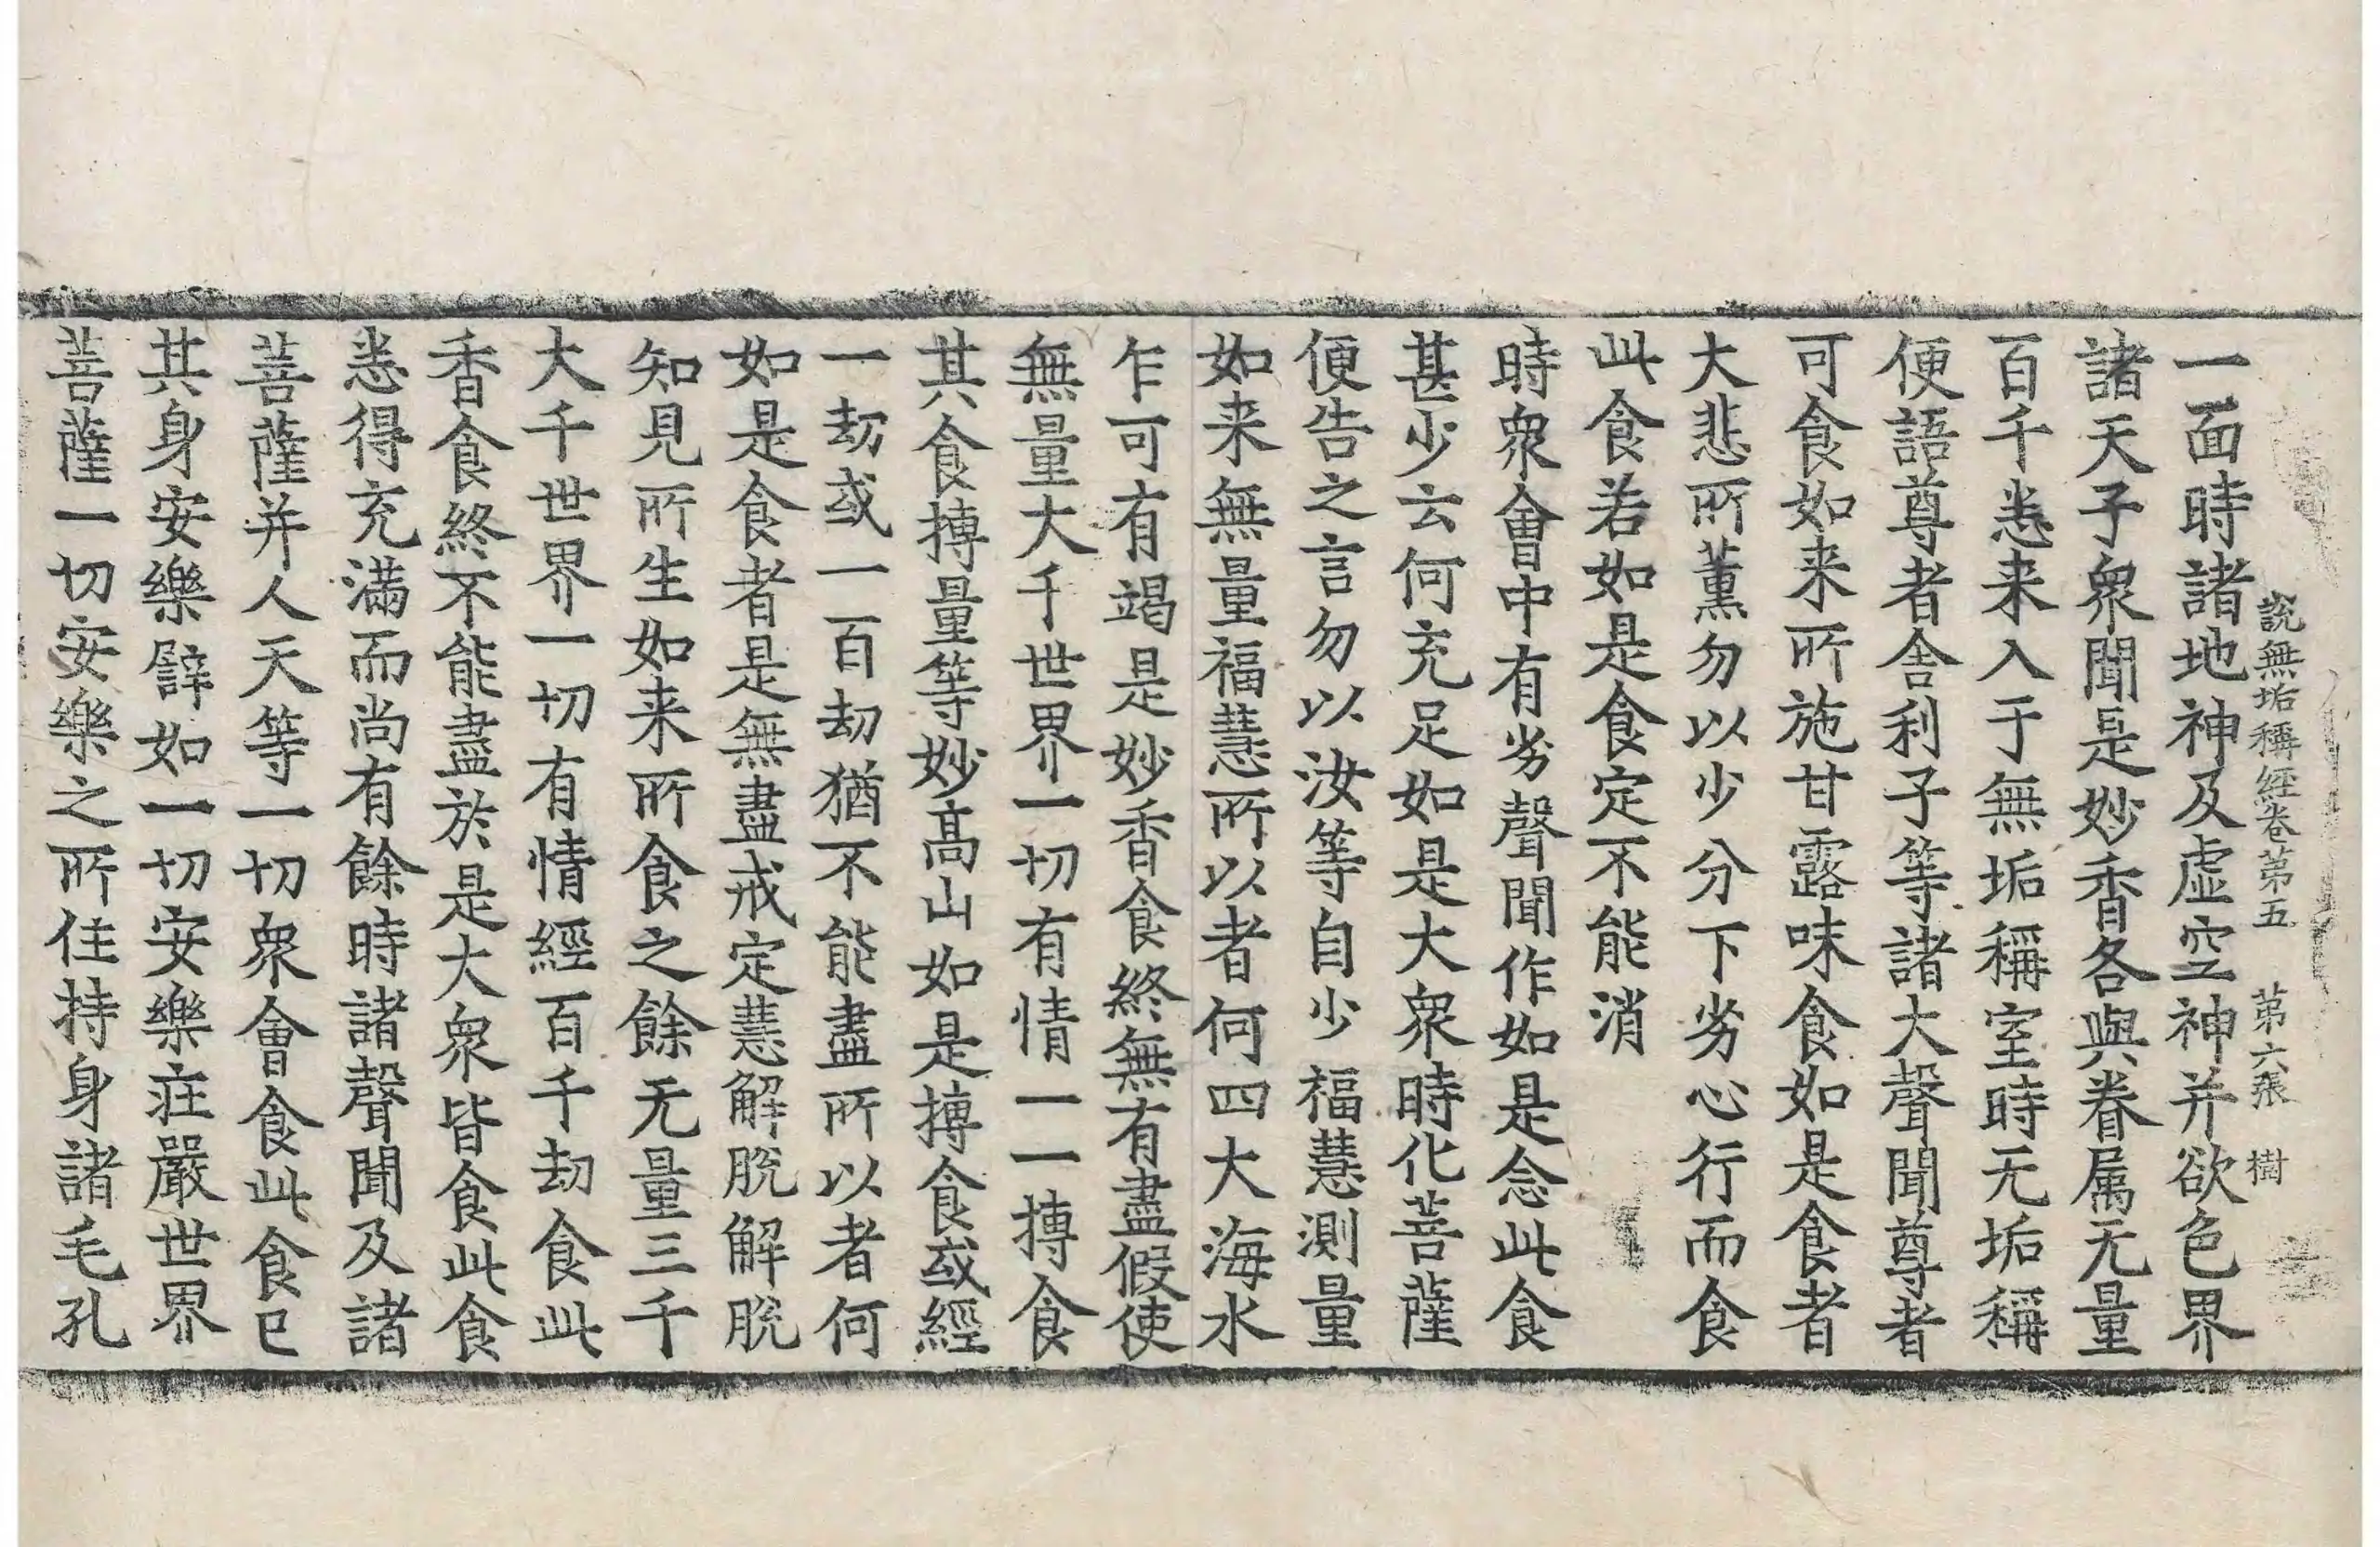 說無垢稱經卷第五 第六張 樹
一面時諸地神及虛空神并欲色界
諸天子衆聞是妙香各與眷属无量
百千悉来入于無垢稱室時无垢稱
便語尊者舍利子等諸大聲聞尊者
可食如来所施甘露味食如是食者
大悲所薰勿以少分下劣心行而食
此食若如是食定不能消
時衆會中有劣聲聞作如是念此食
甚少云何充足如是大衆時化菩薩
便告之言勿以汝等自少福慧測量
如来無量福慧所以者何四大海水
乍可有竭是妙香食終無有盡假使
無量大千世界一切有情一一摶食
其食摶量等妙高山如是摶食或經
一劫或一百劫猶不能盡所以者何
如是食者是無盡戒定慧解脫解脫
知見所生如来所食之餘无量三千
大千世界一切有情經百千劫食此
香食終不能盡於是大衆皆食此食
悉得充滿而尚有餘時諸聲聞及諸
菩薩并人天等一切衆會食此食已
其身安樂譬如一切安樂莊嚴世界
菩薩一切安樂之所住持身諸毛孔